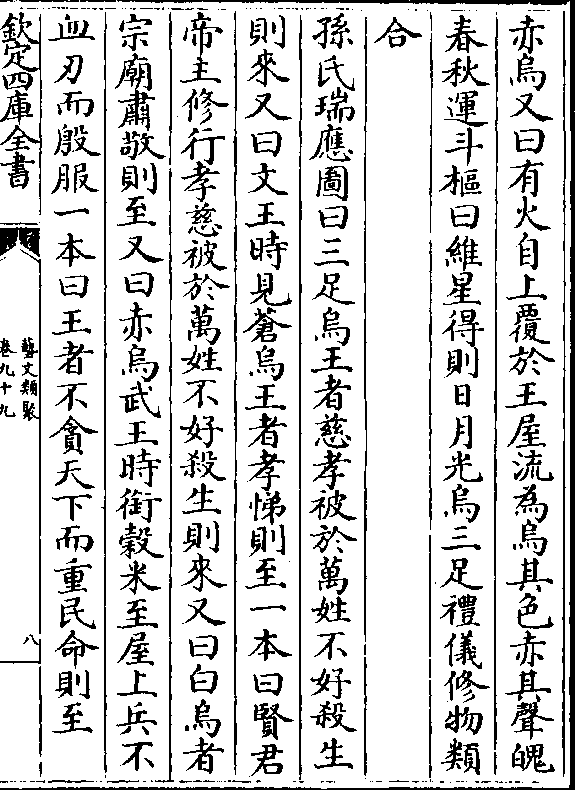 赤烏又曰有火自上覆於王屋流為烏其色赤其聲魄
春秋運斗樞曰維星得則日月光烏三足禮儀修物類
合
孫氏瑞應圖曰三足烏王者慈孝被於萬姓不好殺生
則來又曰文王時見蒼烏王者孝悌則至一本曰賢君
帝主修行孝慈被於萬姓不好殺生則來又曰白烏者
宗廟肅敬則至又曰赤烏武王時銜榖米至屋上兵不
血刃而殷服一本曰王者不貪天下而重民命則至
欽定四庫全書
藝文類聚
卷九十九
八